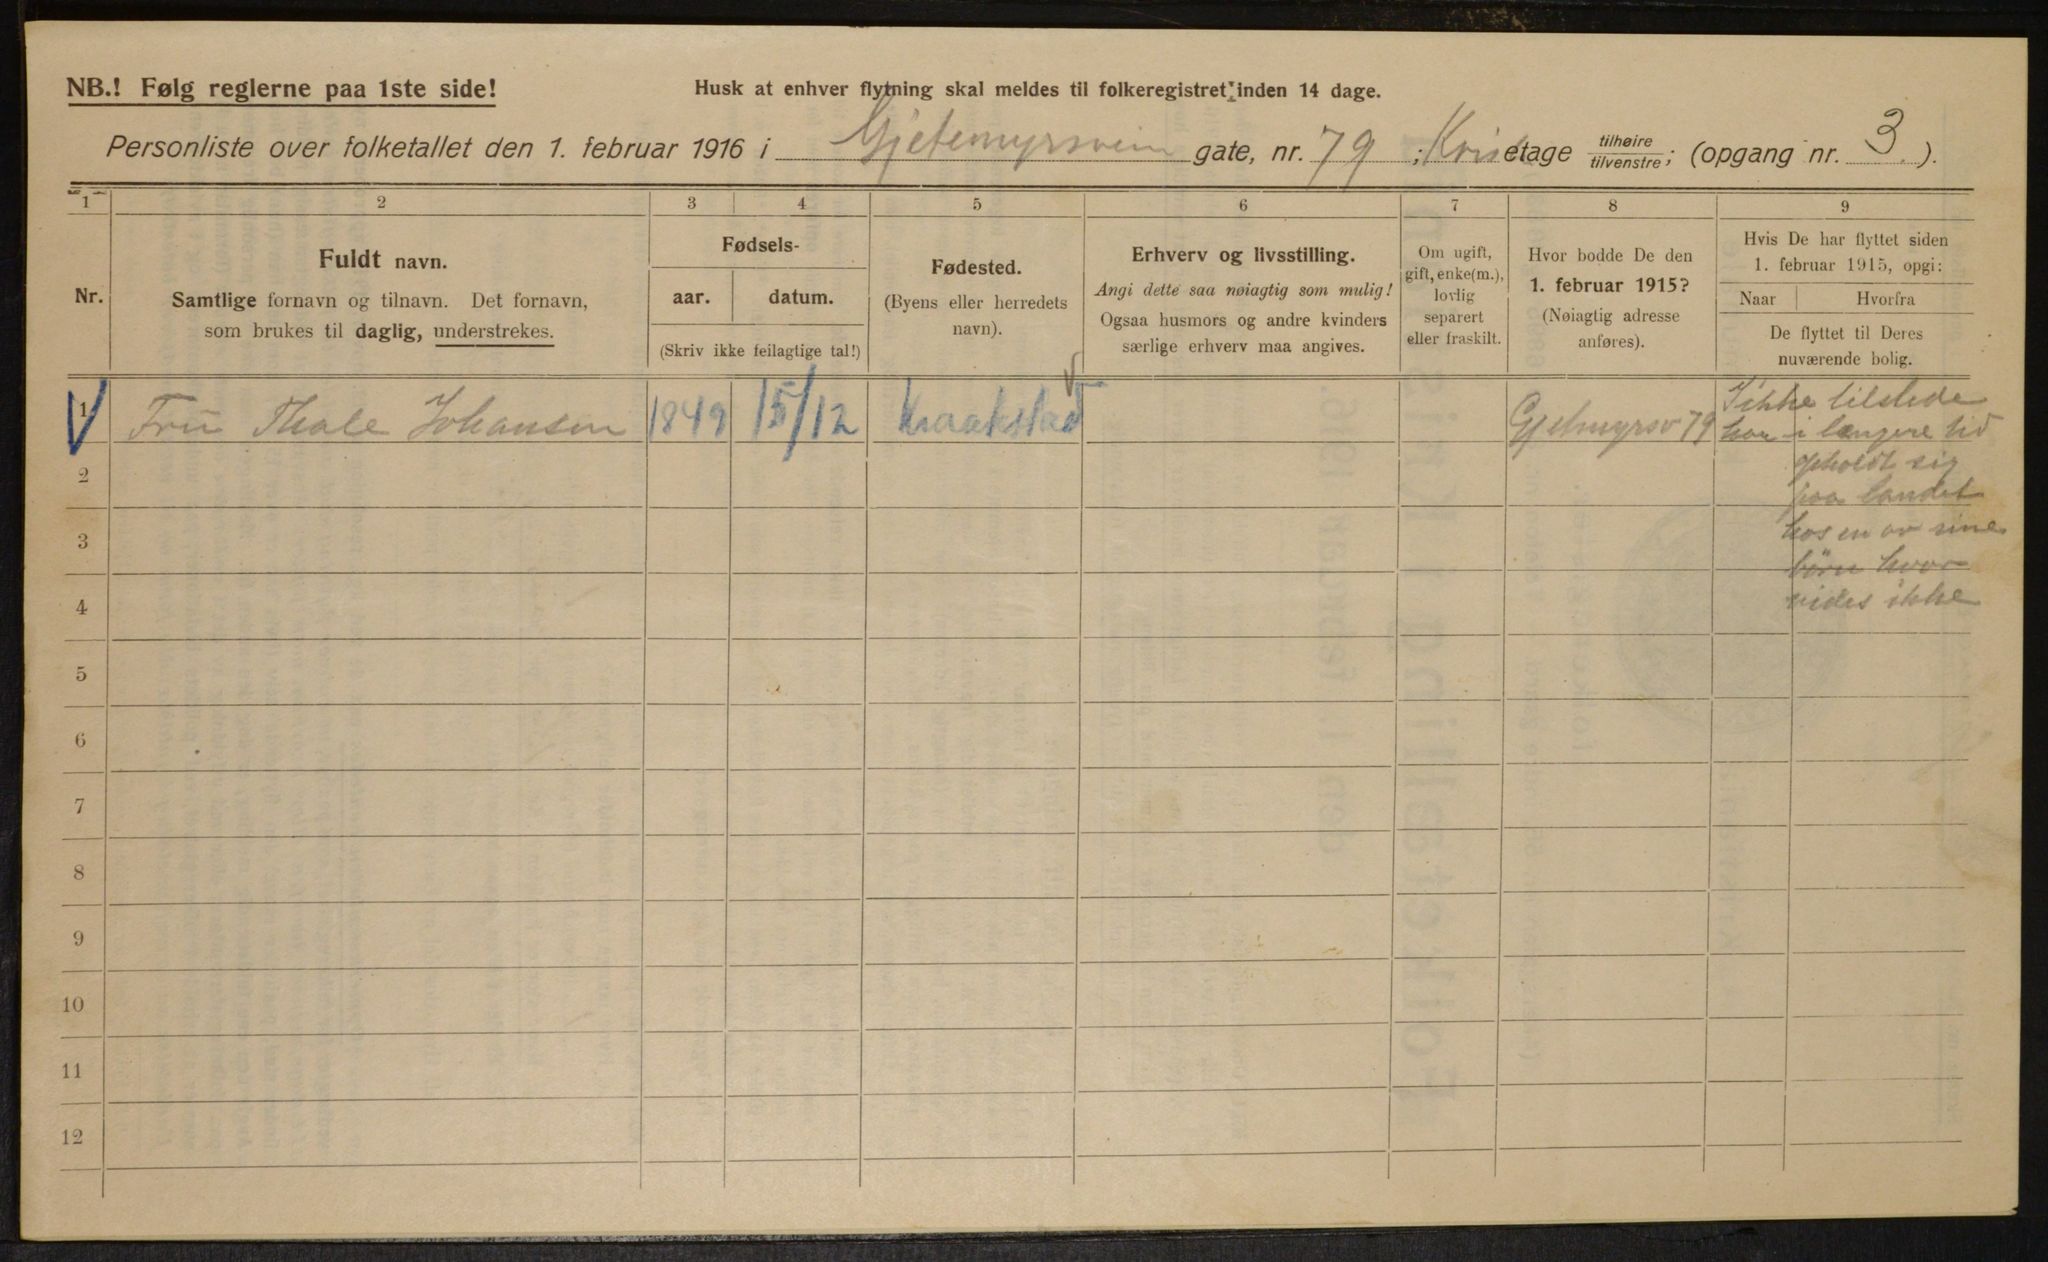 NB.! Følg reglerne paa 1ste side!
Husk at enhver flytning skal meldes til folkeregistret inden 14 dage.
Personliste over folketallet den 1. februar 1916 i Gjetemyrsvein gate, nr. 79 ; Kvist etage tilhøire / tilvenstre ; (opgang nr. 3 ).
1 2 3 4 5 6 7 8 9
Nr.
Fuldt navn.
Samtlige fornavn og tilnavn. Det fornavn,
som brukes til daglig, understrekes.
Fødsels-
aar. datum.
(Skriv ikke feilagtige tal!)
Fødested.
(Byens eller herredets
navn).
Erhverv og livsstilling.
Angi dette saa nøiagtig som mulig!
Ogsaa husmors og andre kvinders
særlige erhverv maa angives.
Om ugift,
gift, enke(m.),
lovlig
separert
eller fraskilt.
Hvor bodde De den
1. februar 1915?
(Nøiagtig adresse
anføres).
Hvis De har flyttet siden
1. februar 1915, opgi:
Naar Hvorfra
De flyttet til Deres
nuværende bolig.
1 Fru Thale Johansen 1849 15/12 Kraakstad Gjetmyrsv 79
Ikke tilstede
har i længere tid
opholdt sig
paa landet
hos en av sine
børn hvor
vides ikke
2
3
4
5
6
7
8
9
10
11
12